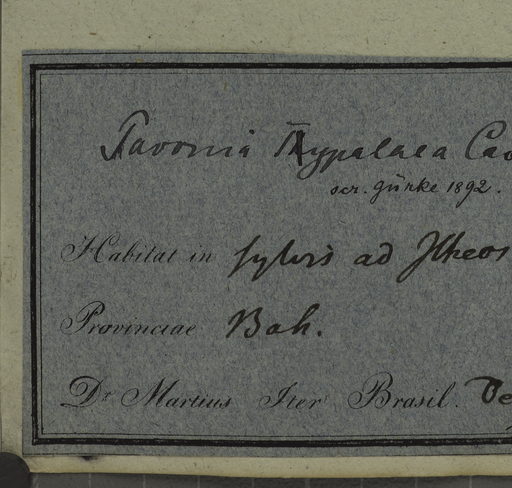 Pavonia Typalaea Cav
scr. Gürke 1892.
Habitat in sylvis ad Ilheos
Provinciae Bah.
Dr Martius Iter Brasil. De